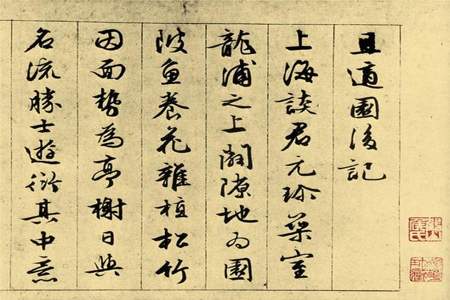 且適園後記
上海談君元珍築室
龍浦之上闢隙地為園
陂魚養花雜植松竹
因面勢為亭榭日與
名流勝士遊衍其中意